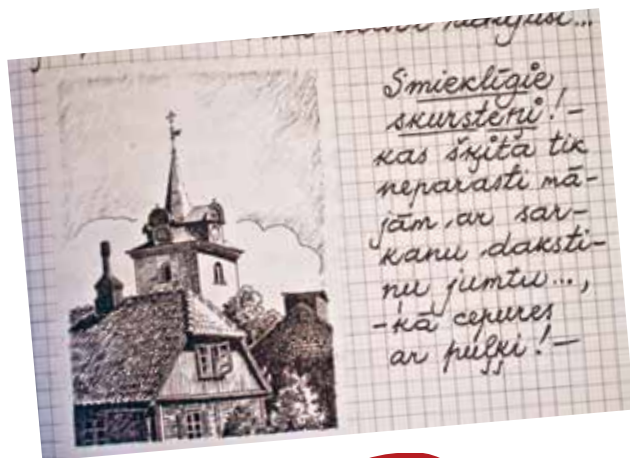 Smieklīgie
skursteņi! –
kas šķita tik
neparasti mā-
jām, ar sar-
kanu daksti-
ņu jumtu...,
– kā cepures
ar puļķi! –